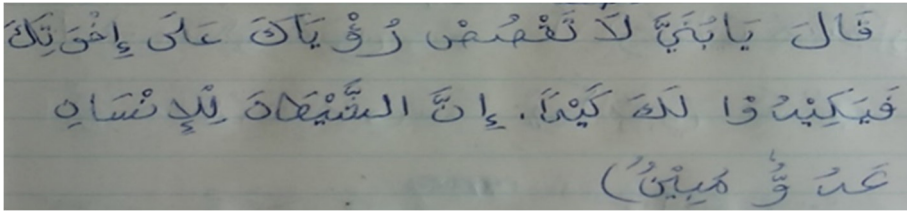 قَالَ يَابُنَيَّ لَا تَقْصُصْ رُؤْيَاكَ عَلَى إِخْوَتِكَ
فَيَكِيْدُوْا لَكَ كَيْدًا. إِنَّ الشَّيْطَانَ لِلْإِنْسَانِ
عَدُوٌّ مُبِيْنٌ)